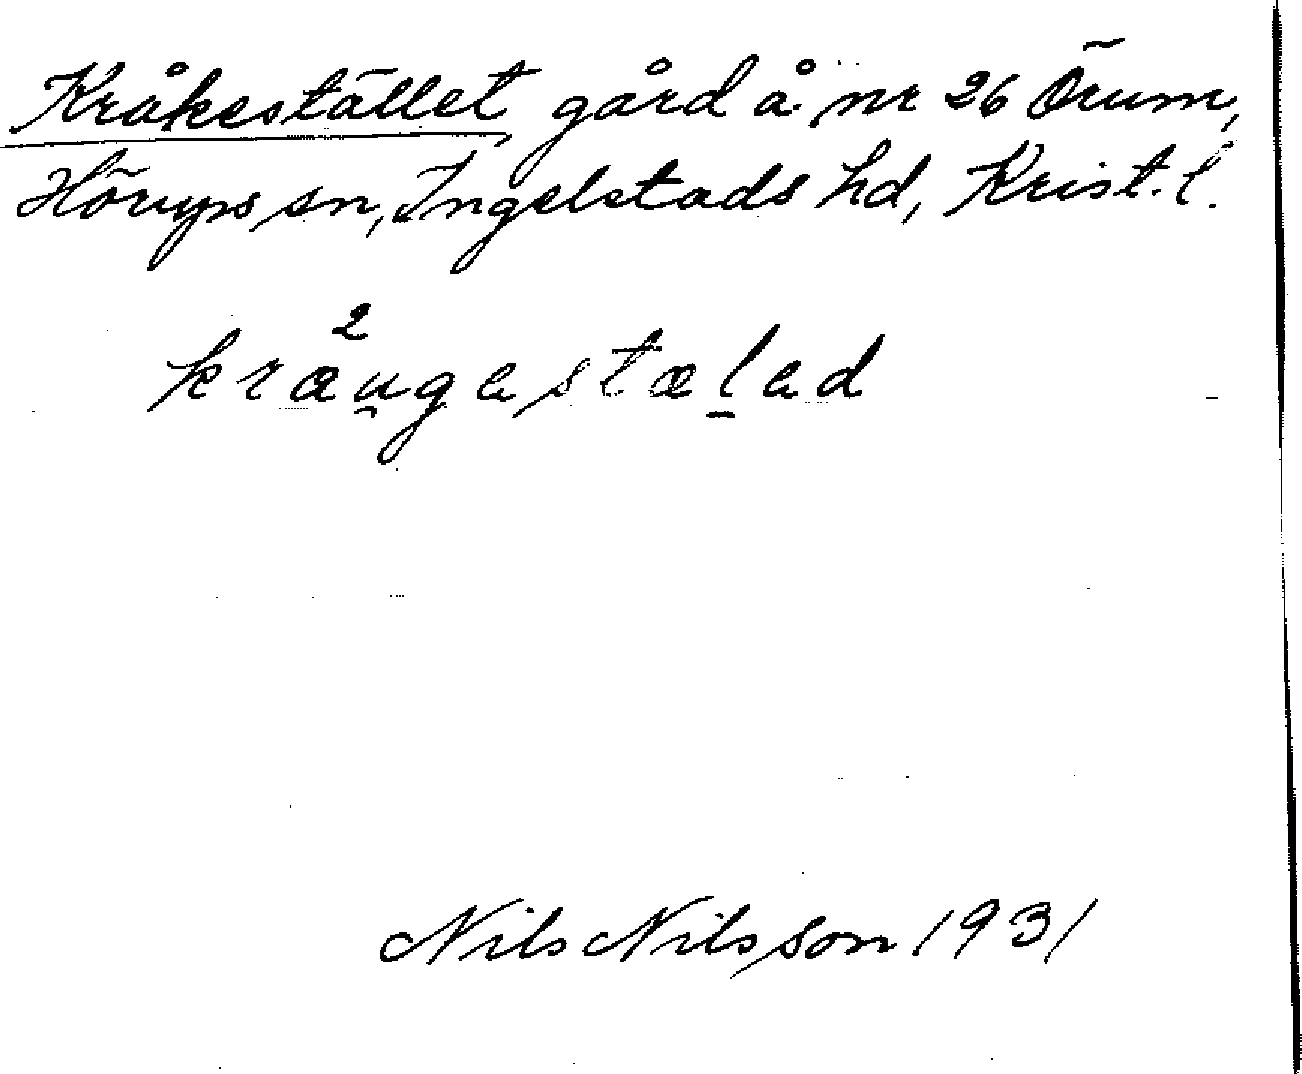 Kråkestället, gård å nr 26 Örum,
Hörups sn, Ingelstads hd, Krist. l.
2
kræu̯gestæl̠ed
Nils Nilsson 1931